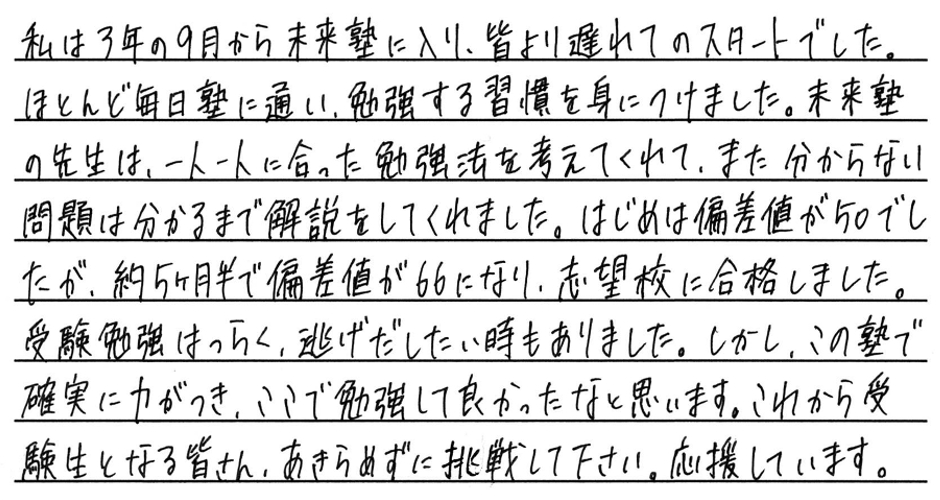 私は3年の9月から未来塾に入り、皆より遅れてのスタートでした。
ほとんど毎日塾に通い、勉強する習慣を身につけました。未来塾
の先生は、一人一人に合った勉強法を考えてくれて、また分からない
問題は分かるまで解説をしてくれました。はじめは偏差値が50でし
たが、約5ヶ月半で偏差値が66になり、志望校に合格しました。
受験勉強はつらく、逃げだしたい時もありました。しかし、この塾で
確実に力がつき、ここで勉強して良かったなと思います。これから受
験生となる皆さん、あきらめずに挑戦して下さい。応援しています。